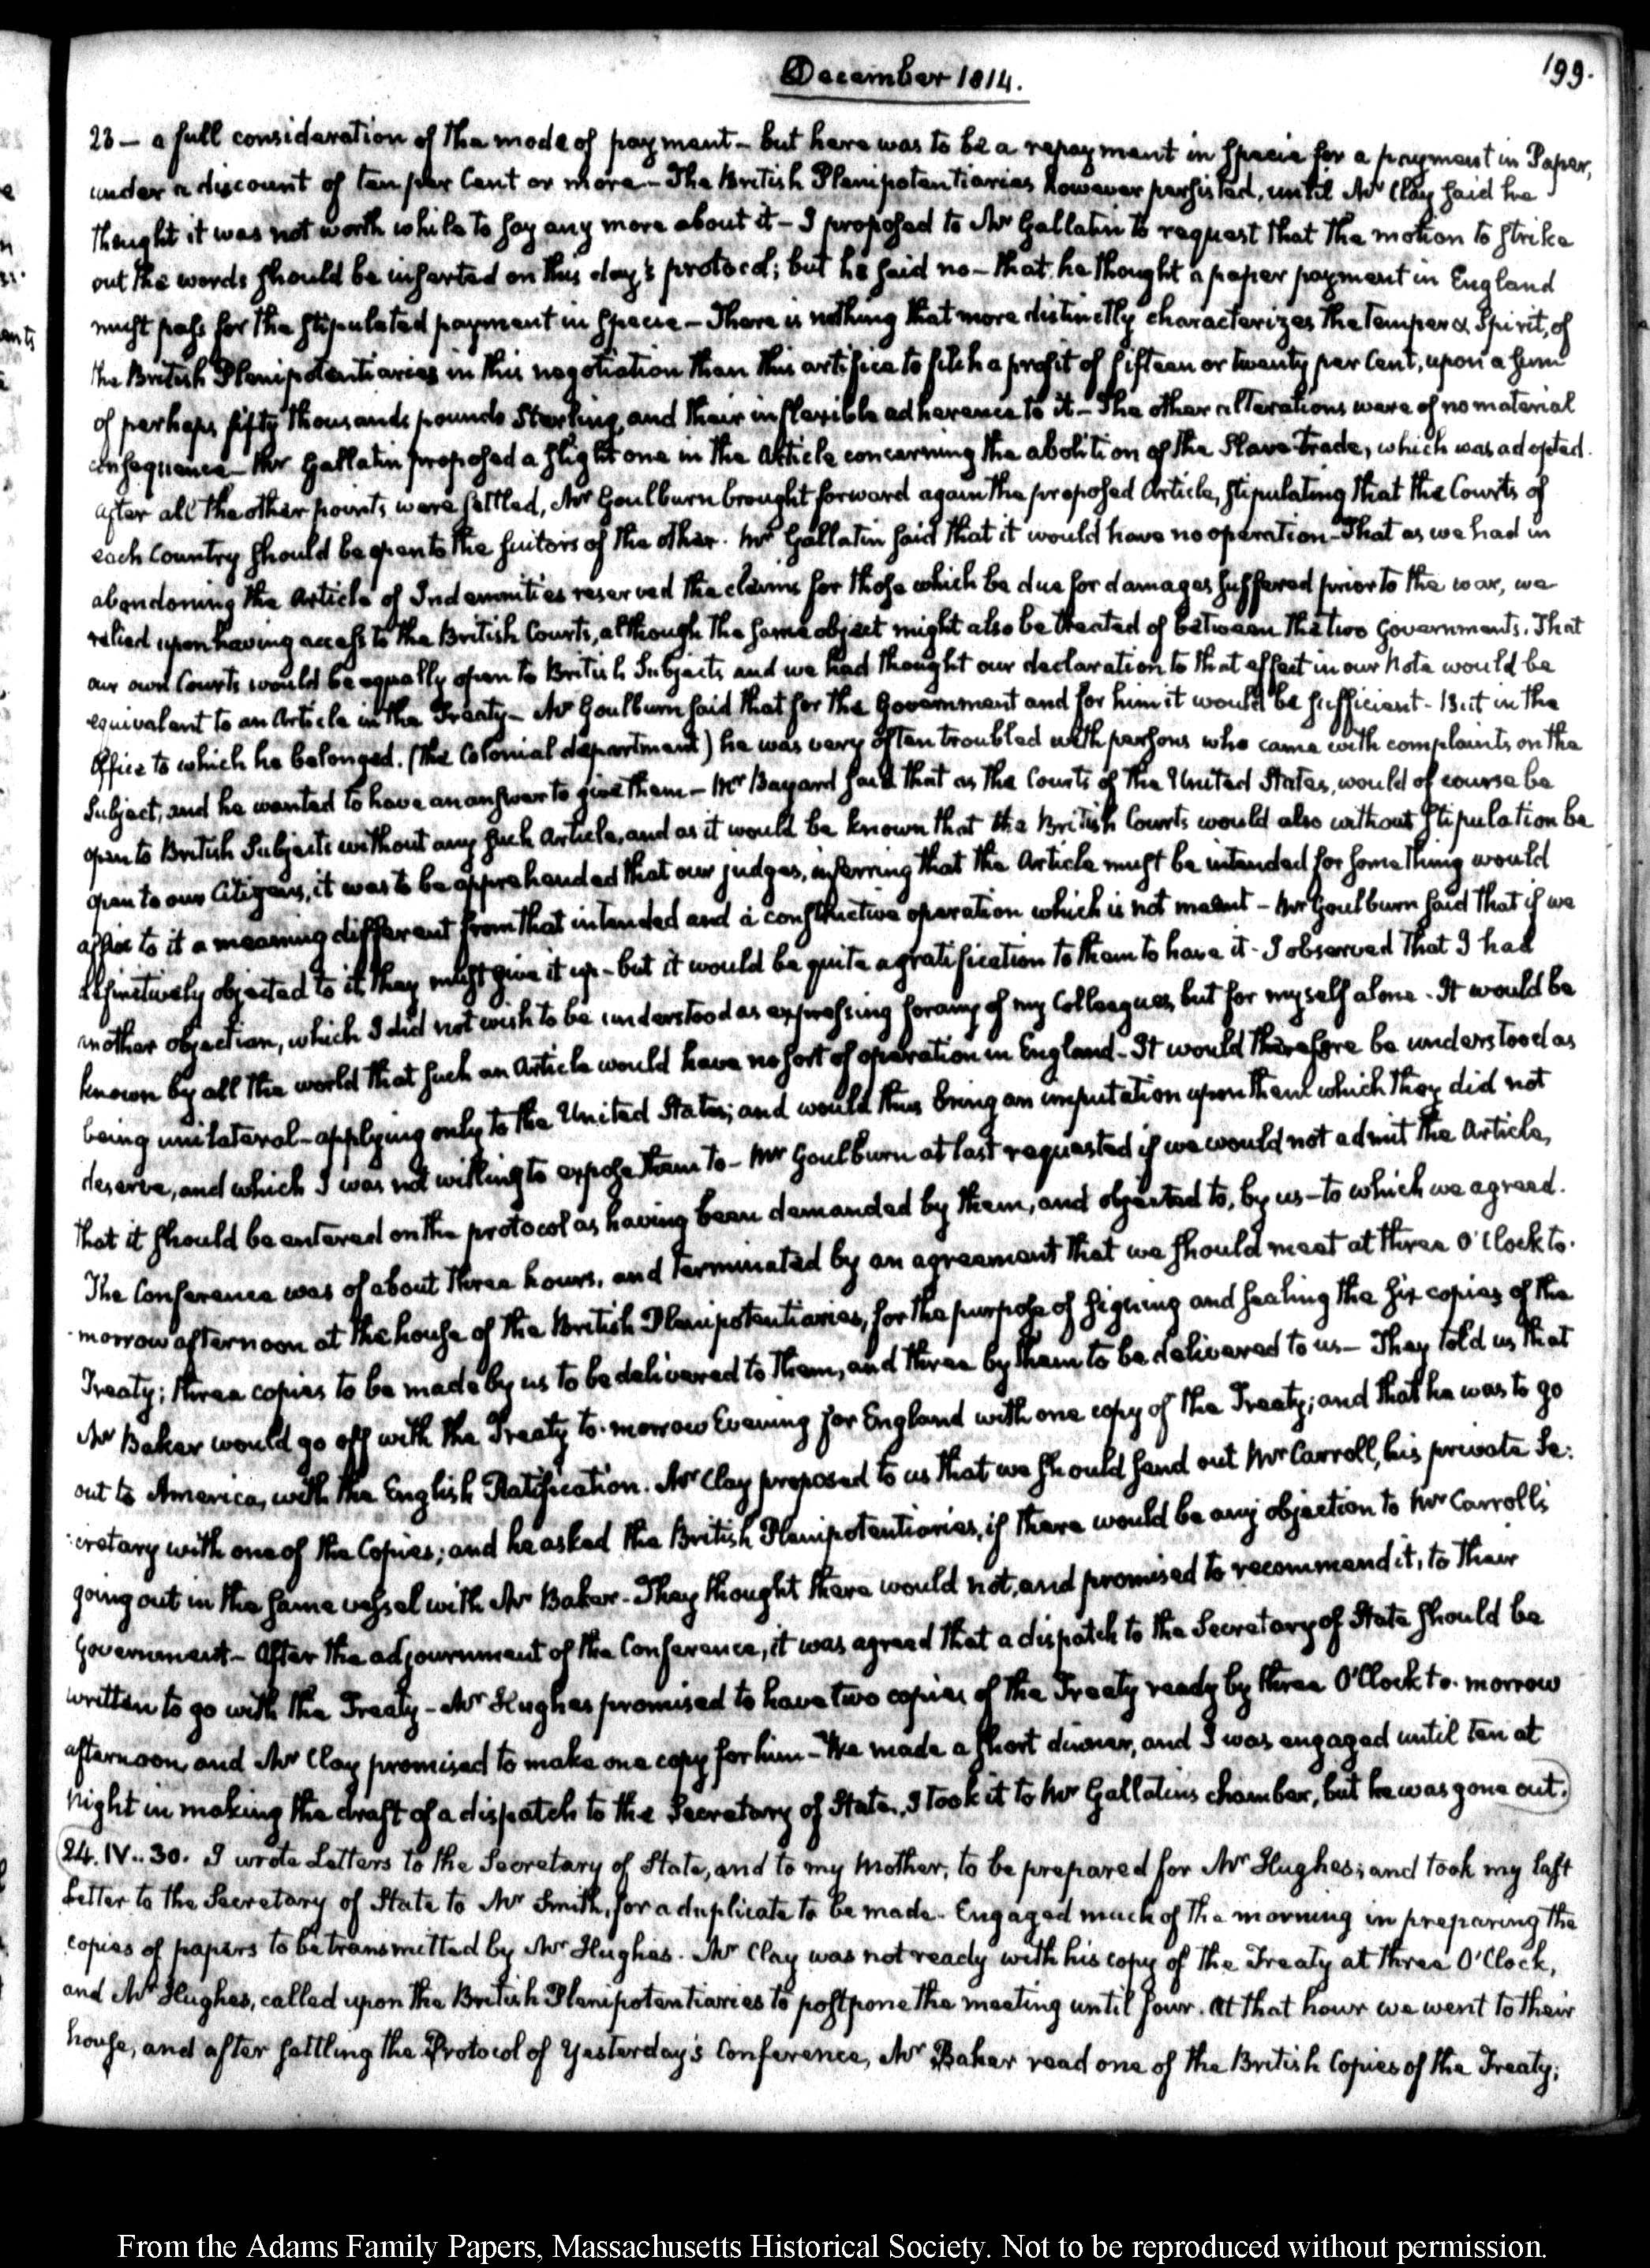 December 1814.
199.
23 — a full consideration of the mode of payment - but here was to be a repayment in Specie for a payment in Paper,
under a discount of ten per Cent or more - The British Plenipotentiaries however persisted, until Mr Clay said he
thought it was not worth while to say any more about it - I proposed to Mr Gallatin to request that the motion to strike
out the words should be inserted on this day's protocol; but he said no - that he thought a paper payment in England
must pass for the stipulated payment in Specie - There is nothing that more distinctly characterizes the Temper & Spirit, of
the British Plenipotentiaries in this negotiation than this artifice to filch a profit of fifteen or twenty per Cent, upon a sum
of perhaps fifty thousands pounds Sterling, and their inflexible adherence to it - The other alterations were of no material
consequence - Mr Gallatin proposed a slight one in the Article concerning the abolition of the Slave-trade, which was adopted.
After all the other points were settled, Mr Goulburn brought forward again the proposed Article, stipulating that the Courts of
each Country should be open to the suitors of the other. Mr Gallatin said that it would have no operation - That as we had in
abandoning the Article of Indemnities reserved the claims for those which be due for damages suffered prior to the war, we
relied upon having access to the British Courts, although the same object might also be treated of between the two Governments. That
our own Courts would be equally open to British Subjects and we had thought our declaration to that effect in our Note would be
equivalent to an Article in the Treaty - Mr Goulburn said that for the Government and for him it would be sufficient - But in the
Office to which he belonged. (the Colonial department) he was very often troubled with persons who came with complaints on the
Subject, and he wanted to have an answer to give them - Mr Bayard said that as the Courts of the United States, would of course be
open to British Subjects without any such Article, and as it would be known that the British Courts would also without stipulation be
open to our Citizens, it was to be apprehended that our judges, inferring that the Article must be intended for something would
affix to it a meaning different from that intended and a constructive operation which is not meant - Mr Goulburn said that if we
definitively objected to it they must give it up - but it would be quite a gratification to them to have it - I observed that I had
another objection, which I did not wish to be understood as expressing for any of my Colleagues, but for myself alone - It would be
known by all the world that such an Article would have no sort of operation in England - It would therefore be understood as
being unilateral - applying only to the United States; and would thus bring an imputation upon them which they did not
deserve, and which I was not willing to expose them to - Mr Goulburn at last requested if we would not admit the Article,
that it should be entered on the protocol as having been demanded by them, and objected to, by us - to which we agreed.
The Conference was of about three hours, and terminated by an agreement that we should meet at three O'Clock to-
morrow afternoon at the house of the British Plenipotentiaries, for the purpose of signing and sealing the six copies of the
Treaty; three copies to be made by us to be delivered to them, and three by them to be delivered to us - They told us that
Mr Baker would go off with the Treaty to-morrow Evening for England with one copy of the Treaty; and that he was to go
out to America, with the English Ratification. Mr Clay proposed to us that we should send out Mr Carroll, his private Se:
:cretary with one of the Copies; and he asked the British Plenipotentiaries, if there would be any objection to Mr Carroll's
going out in the same vessel with Mr Baker - They thought there would not, and promised to recommend it, to their
Government - After the adjournment of the Conference, it was agreed that a dispatch to the Secretary of State should be
written to go with the Treaty - Mr Hughes promised to have two copies of the Treaty ready by three O'Clock to-morrow
afternoon, and Mr Clay promised to make one copy for him - We made a short dinner, and I was engaged until ten at
Night in making the draft of a dispatch to the Secretary of State, I took it to Mr Gallatin's chamber, but he was gone out.
24. IV..30. I wrote Letters to the Secretary of State, and to my Mother, to be prepared for Mr Hughes; and took my last
Letter to the Secretary of State to Mr Smith, for a duplicate to be made. Engaged much of the morning in preparing the
copies of papers to be transmitted by Mr Hughes. Mr Clay was not ready with his copy of the Treaty at three O'Clock,
and Mr Hughes, called upon the British Plenipotentiaries to postpone the meeting until four. At that hour we went to their
house, and after settling the Protocol of Yesterday's Conference, Mr Baker read one of the British Copies of the Treaty;
From the Adams Family Papers, Massachusetts Historical Society. Not to be reproduced without permission.